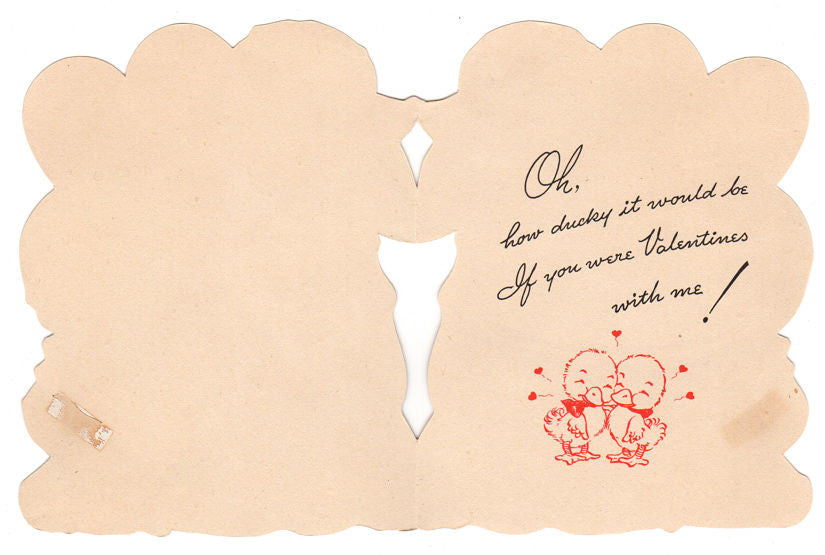 Oh,
how ducky it would be
If you were Valentines
with me!